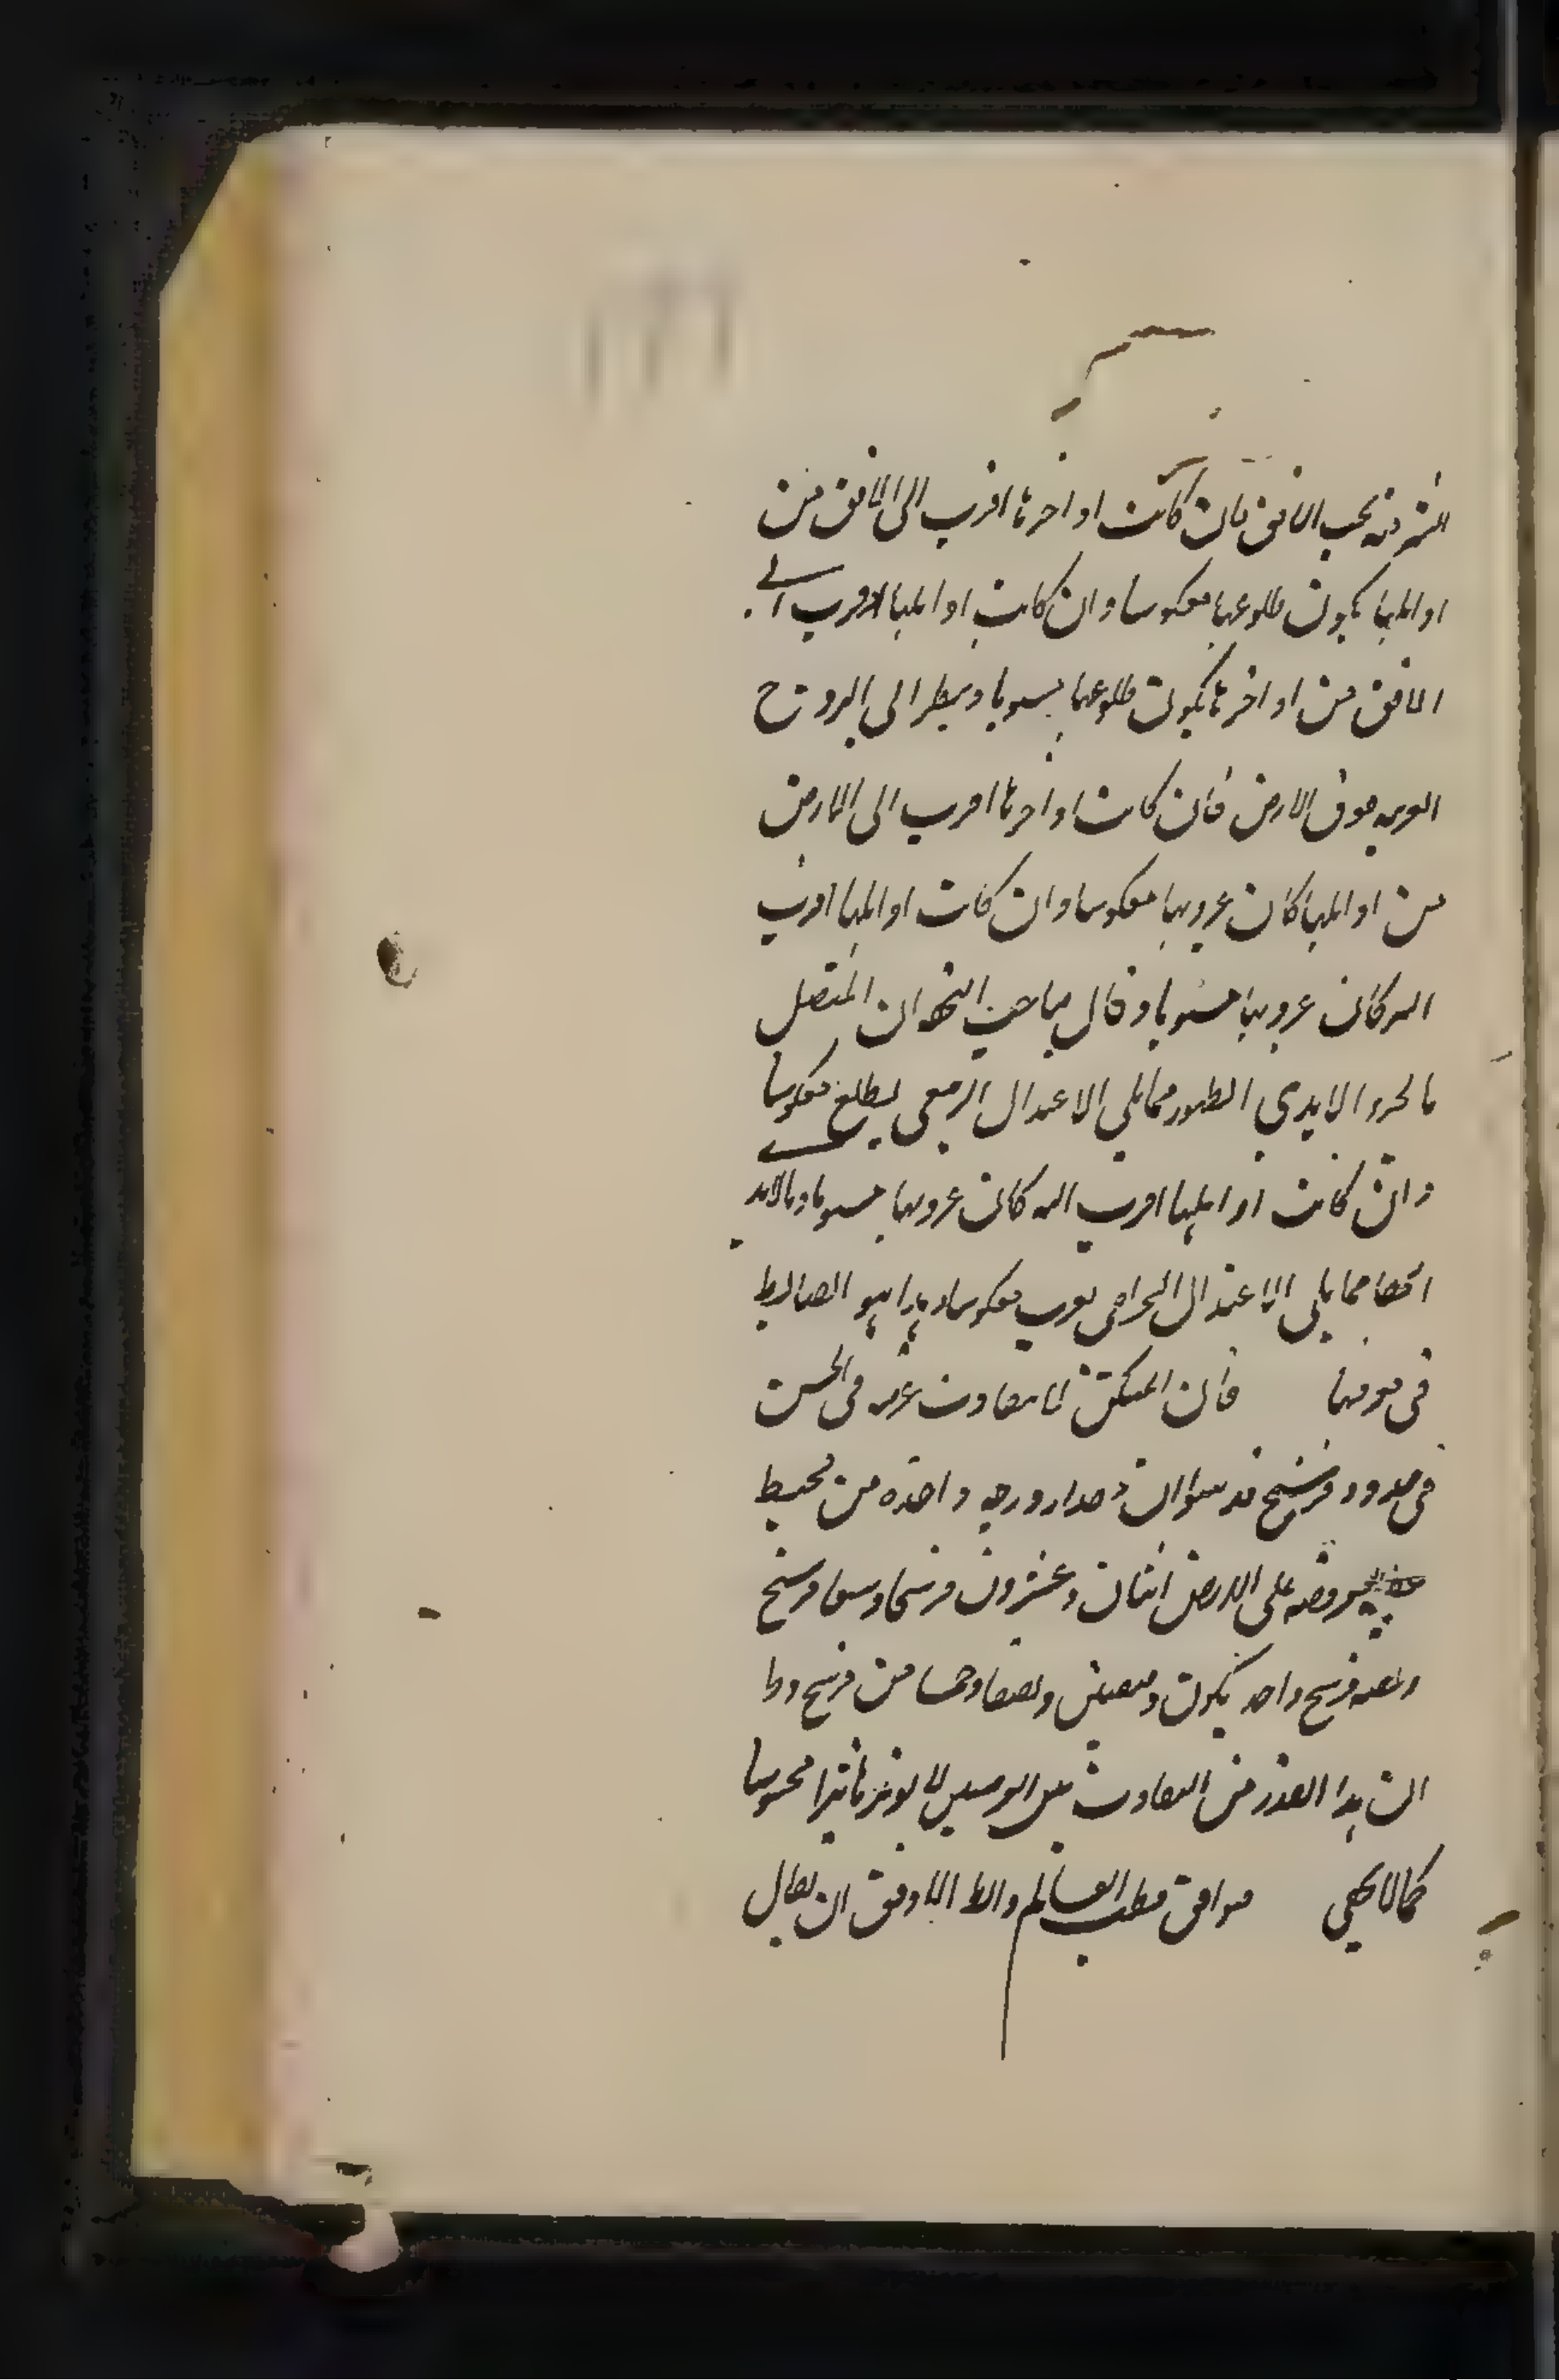 الشرقية تحت الافق فان كانت اواخرها اقرب الى الافق من
اوايلها يكون طلوعها معكوسا وان كانت اوايلها اقرب الى
الافق من اواخرها يكون طلوعها مستويا وينظر الى البروج
الغربية فوق الارض فان كانت اواخرها اقرب الى الارض
من اوايلها كان غروبها معكوسا وان كانت اوايلها اقرب
اليه كان غروبها مستويا وقال صاحب التحفة ان المتصل
بالجزء الابدي الظهور مما يلي الاعتدال الربيعي يطلع معكوسا
وان كانت اوايلها اقرب اليه كان غروبها مستويا وبالابدي
الخفا مما يلي الاعتدال الخريفي يغرب معكوسا وهذا هو الضابط
في قوسها فان لا يتفاوت في الحس
في حدود فرسخ قد مقدار درجة واحدة من محيط
على الارض اثنان وعشرون فرسخا وتسعا فرسخ
وحصة فرسخ واحد يكون دقيقتين ونصفا وخمسا من فرسخ
ان هذا القدر من التفاوت بين لا يؤثر تاثيرا محسوسا
كما لا يخفى موافق قطب العالم الاوفق ان يقال